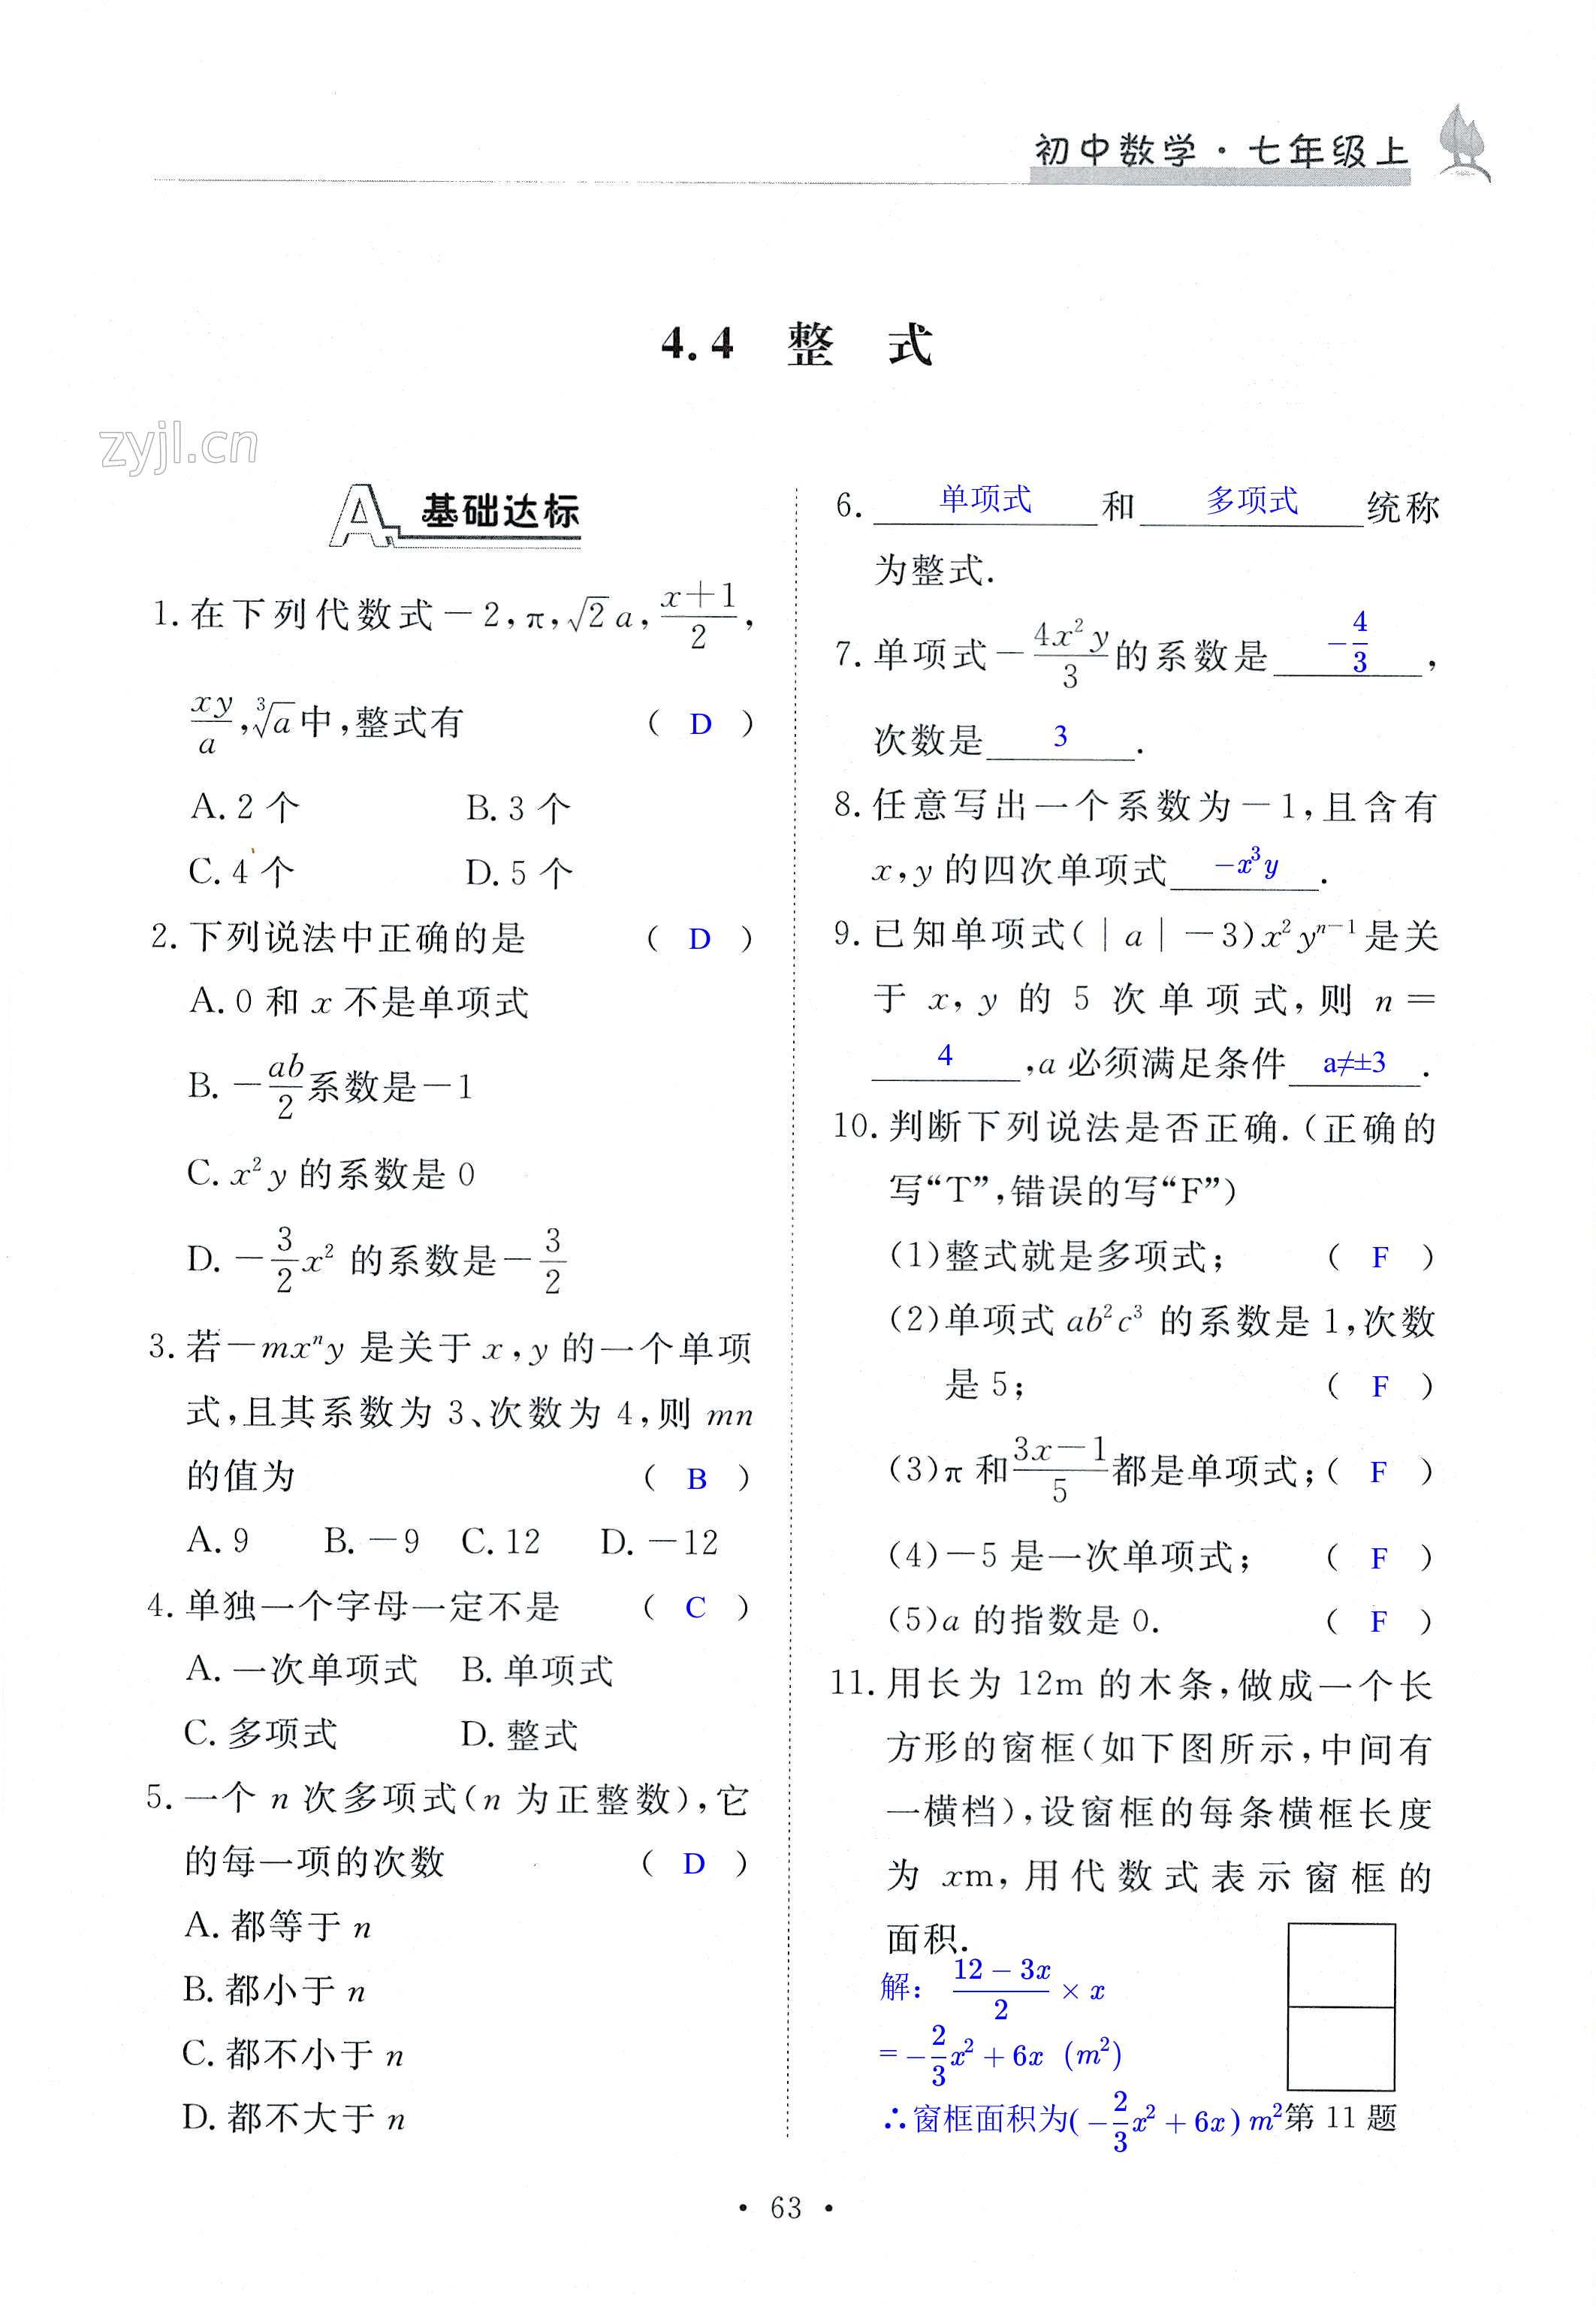 初中数学·七年级上
4.4 整 式
zyjl.cn
A 基础达标
1. 在下列代数式-2,π,√2 a,(x+1)/2,
xy/a,∛a中,整式有 ( D )
A. 2 个 B. 3 个
C. 4 个 D. 5 个
2. 下列说法中正确的是 ( D )
A. 0 和 x 不是单项式
B. -ab/2系数是-1
C. x²y 的系数是 0
D. -3/2 x² 的系数是-3/2
3. 若-mxⁿy 是关于 x,y 的一个单项
式,且其系数为 3、次数为 4,则 mn
的值为 ( B )
A. 9 B. -9 C. 12 D. -12
4. 单独一个字母一定不是 ( C )
A. 一次单项式 B. 单项式
C. 多项式 D. 整式
5. 一个 n 次多项式(n 为正整数),它
的每一项的次数 ( D )
A. 都等于 n
B. 都小于 n
C. 都不小于 n
D. 都不大于 n
6. 单项式 和 多项式 统称
为整式.
7. 单项式-4x²y/3的系数是 -4/3 ,
次数是 3 .
8. 任意写出一个系数为-1,且含有
x,y 的四次单项式 -x³y .
9. 已知单项式(|a|-3)x²yⁿ⁻¹是关
于 x, y 的 5 次单项式,则 n=
4 ,a 必须满足条件 a≠±3 .
10. 判断下列说法是否正确.(正确的
写“T”,错误的写“F”)
(1)整式就是多项式; ( F )
(2)单项式 ab²c³ 的系数是 1,次数
是 5; ( F )
(3)π 和(3x-1)/5都是单项式; ( F )
(4)-5 是一次单项式; ( F )
(5)a 的指数是 0. ( F )
11. 用长为 12m 的木条,做成一个长
方形的窗框(如下图所示,中间有
一横档),设窗框的每条横框长度
为 xm,用代数式表示窗框的
面积.
解: (12-3x)/2 × x
=-2/3 x²+6x (m²)
∴窗框面积为(-2/3 x²+6x) m²
第 11 题
• 63 •